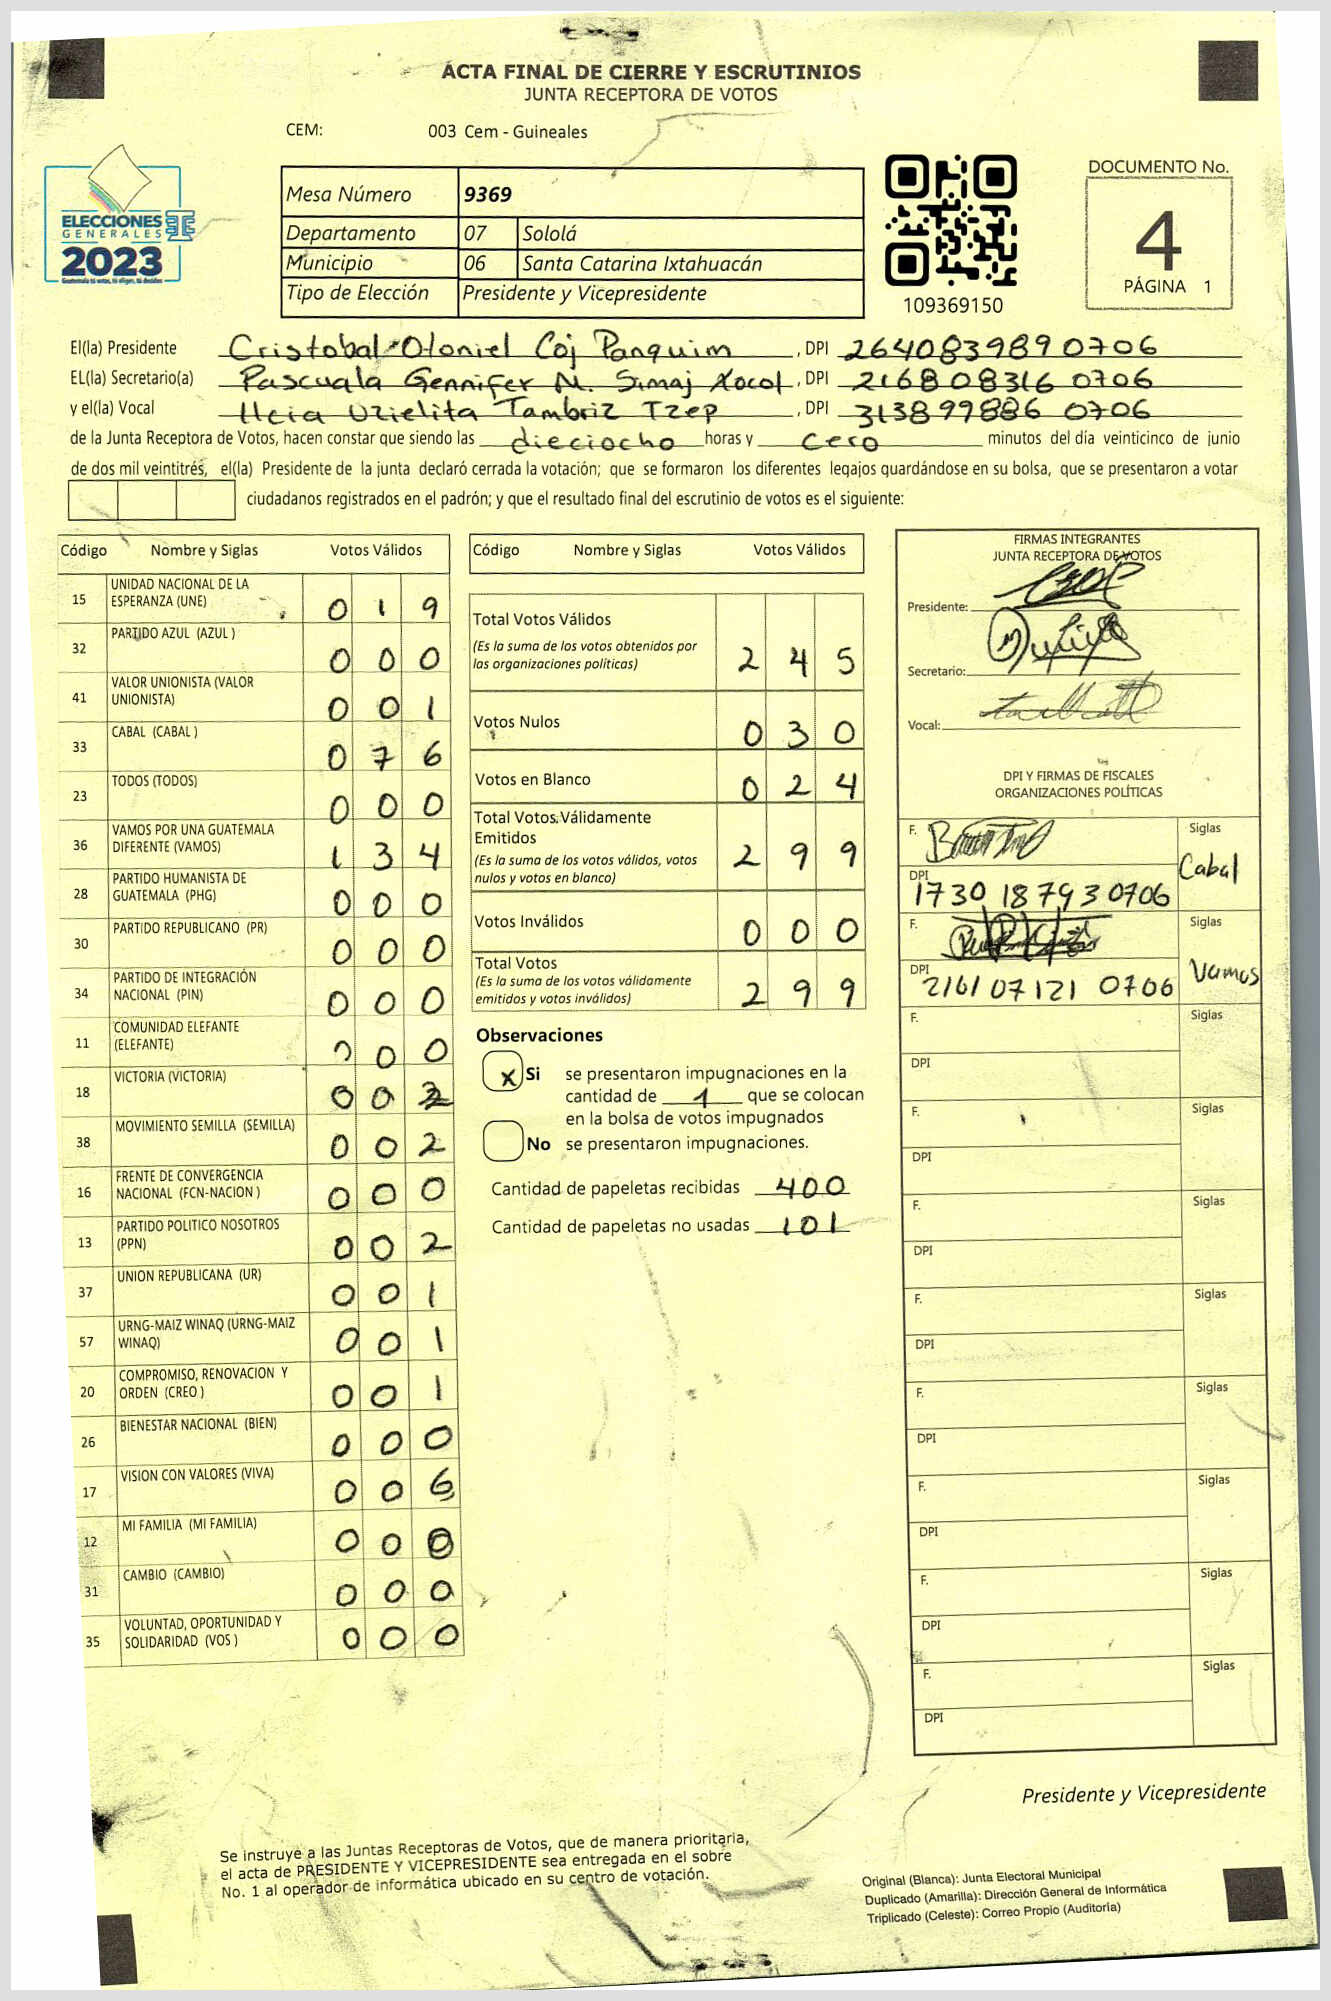 ACTA FINAL DE CIERRE Y ESCRUTINIOS
JUNTA RECEPTORA DE VOTOS
CEM: 003 Cem - Guineales
ELECCIONES
GENERALES
2023
Mesa Número 9369
Departamento 07 Sololá
Municipio 06 Santa Catarina Ixtahuacán
Tipo de Elección Presidente y Vicepresidente
109369150
DOCUMENTO No.
4
PÁGINA 1
El(la) Presidente Cristobal Otoniel Coj Panquim, DPI 2640839890706
EL(la) Secretario(a) Pascuala Gennifer M. Simaj Xocol, DPI 216808316 0706
y el(la) Vocal Uzielita Tambriz Tzep, DPI 313899886 0706
de la Junta Receptora de Votos, hacen constar que siendo las dieciocho horas y cero minutos del día veinticinco de junio
de dos mil veintitrés, el(la) Presidente de la junta declaró cerrada la votación; que se formaron los diferentes legajos guardándose en su bolsa, que se presentaron a votar
ciudadanos registrados en el padrón; y que el resultado final del escrutinio de votos es el siguiente:
Código Nombre y Siglas Votos Válidos
15 UNIDAD NACIONAL DE LA
ESPERANZA (UNE) 0 1 9
32 PARTIDO AZUL (AZUL ) 0 0 0
41 VALOR UNIONISTA (VALOR
UNIONISTA) 0 0 1
33 CABAL (CABAL ) 0 7 6
23 TODOS (TODOS) 0 0 0
36 VAMOS POR UNA GUATEMALA
DIFERENTE (VAMOS) 1 3 4
28 PARTIDO HUMANISTA DE
GUATEMALA (PHG) 0 0 0
30 PARTIDO REPUBLICANO (PR) 0 0 0
34 PARTIDO DE INTEGRACIÓN
NACIONAL (PIN) 0 0 0
11 COMUNIDAD ELEFANTE
(ELEFANTE) 0 0 0
18 VICTORIA (VICTORIA) 0 0
38 MOVIMIENTO SEMILLA (SEMILLA) 0 0 2
16 FRENTE DE CONVERGENCIA
NACIONAL (FCN-NACION ) 0 0 0
13 PARTIDO POLITICO NOSOTROS
(PPN) 0 0 2
37 UNION REPUBLICANA (UR) 0 0 1
57 URNG-MAIZ WINAQ (URNG-MAIZ
WINAQ) 0 0 1
20 COMPROMISO, RENOVACION Y
ORDEN (CREO ) 0 0 1
26 BIENESTAR NACIONAL (BIEN) 0 0 0
17 VISION CON VALORES (VIVA) 0 0 6
12 MI FAMILIA (MI FAMILIA) 0 0 0
31 CAMBIO (CAMBIO) 0 0 0
35 VOLUNTAD, OPORTUNIDAD Y
SOLIDARIDAD (VOS ) 0 0 0
Código Nombre y Siglas Votos Válidos
Total Votos Válidos
(Es la suma de los votos obtenidos por
las organizaciones políticas) 2 4 5
Votos Nulos 0 3 0
Votos en Blanco 0 2 4
Total Votos Válidamente
Emitidos
(Es la suma de los votos válidos, votos
nulos y votos en blanco) 2 9 9
Votos Inválidos 0 0 0
Total Votos
(Es la suma de los votos válidamente
emitidos y votos inválidos) 2 9 9
Observaciones
x Si se presentaron impugnaciones en la
cantidad de 1 que se colocan
en la bolsa de votos impugnados
No se presentaron impugnaciones.
Cantidad de papeletas recibidas 400
Cantidad de papeletas no usadas 101
FIRMAS INTEGRANTES
JUNTA RECEPTORA DE VOTOS
Presidente:
Secretario:
Vocal:
DPI Y FIRMAS DE FISCALES
ORGANIZACIONES POLÍTICAS
F. Siglas
Cabal
DPI
1730 18793 0706
F. Siglas
Vamos
DPI
2161 07121 0706
F. Siglas
DPI
F. Siglas
DPI
F. Siglas
DPI
F. Siglas
DPI
F. Siglas
DPI
F. Siglas
DPI
F. Siglas
DPI
F. Siglas
DPI
Presidente y Vicepresidente
Se instruye a las Juntas Receptoras de Votos, que de manera prioritaria,
el acta de PRESIDENTE Y VICEPRESIDENTE sea entregada en el sobre
No. 1 al operador de informática ubicado en su centro de votación.
Original (Blanca): Junta Electoral Municipal
Duplicado (Amarilla): Dirección General de Informática
Triplicado (Celeste): Correo Propio (Auditoría)